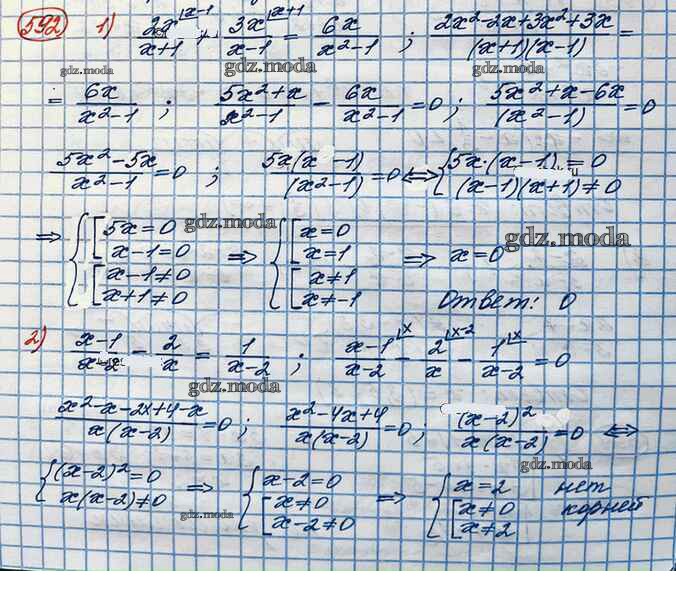 592 1) 2x^{|x-1}/(x+1) + 3x^{|x+1}/(x-1) = 6x/(x²-1) ; (2x²-2x+3x²+3x)/((x+1)(x-1)) =
gdz.moda gdz.moda gdz.moda
= 6x/(x²-1) ; (5x²+x)/(x²-1) - 6x/(x²-1) = 0 ; (5x²+x-6x)/(x²-1) = 0
(5x²-5x)/(x²-1) = 0 ; 5x(x-1)/(x²-1) = 0 ⇔ { 5x·(x-1) = 0
(x-1)(x+1) ≠ 0
⇒ { [ 5x=0 gdz.moda ⇒ { [ x=0 ⇒ x=0 gdz.moda
x-1=0 x=1
[ x-1≠0 [ x≠1
x+1≠0 x≠-1 Ответ: 0
2) (x-1)/(x-2) - 2/x = 1/(x-2) ; (x-1)^{|x}/(x-2) - 2^{|x-2}/x - 1^{|x}/(x-2) = 0
gdz.moda
(x²-x-2x+4-x)/(x(x-2)) = 0 ; (x²-4x+4)/(x(x-2)) = 0 ; (x-2)²/(x(x-2)) = 0 ⇔
gdz.moda
{ (x-2)²=0 ⇒ { x-2=0 ⇒ { x=2 нет
x(x-2)≠0 [ x≠0 [ x≠0 корней
x-2≠0 x≠2
gdz.moda